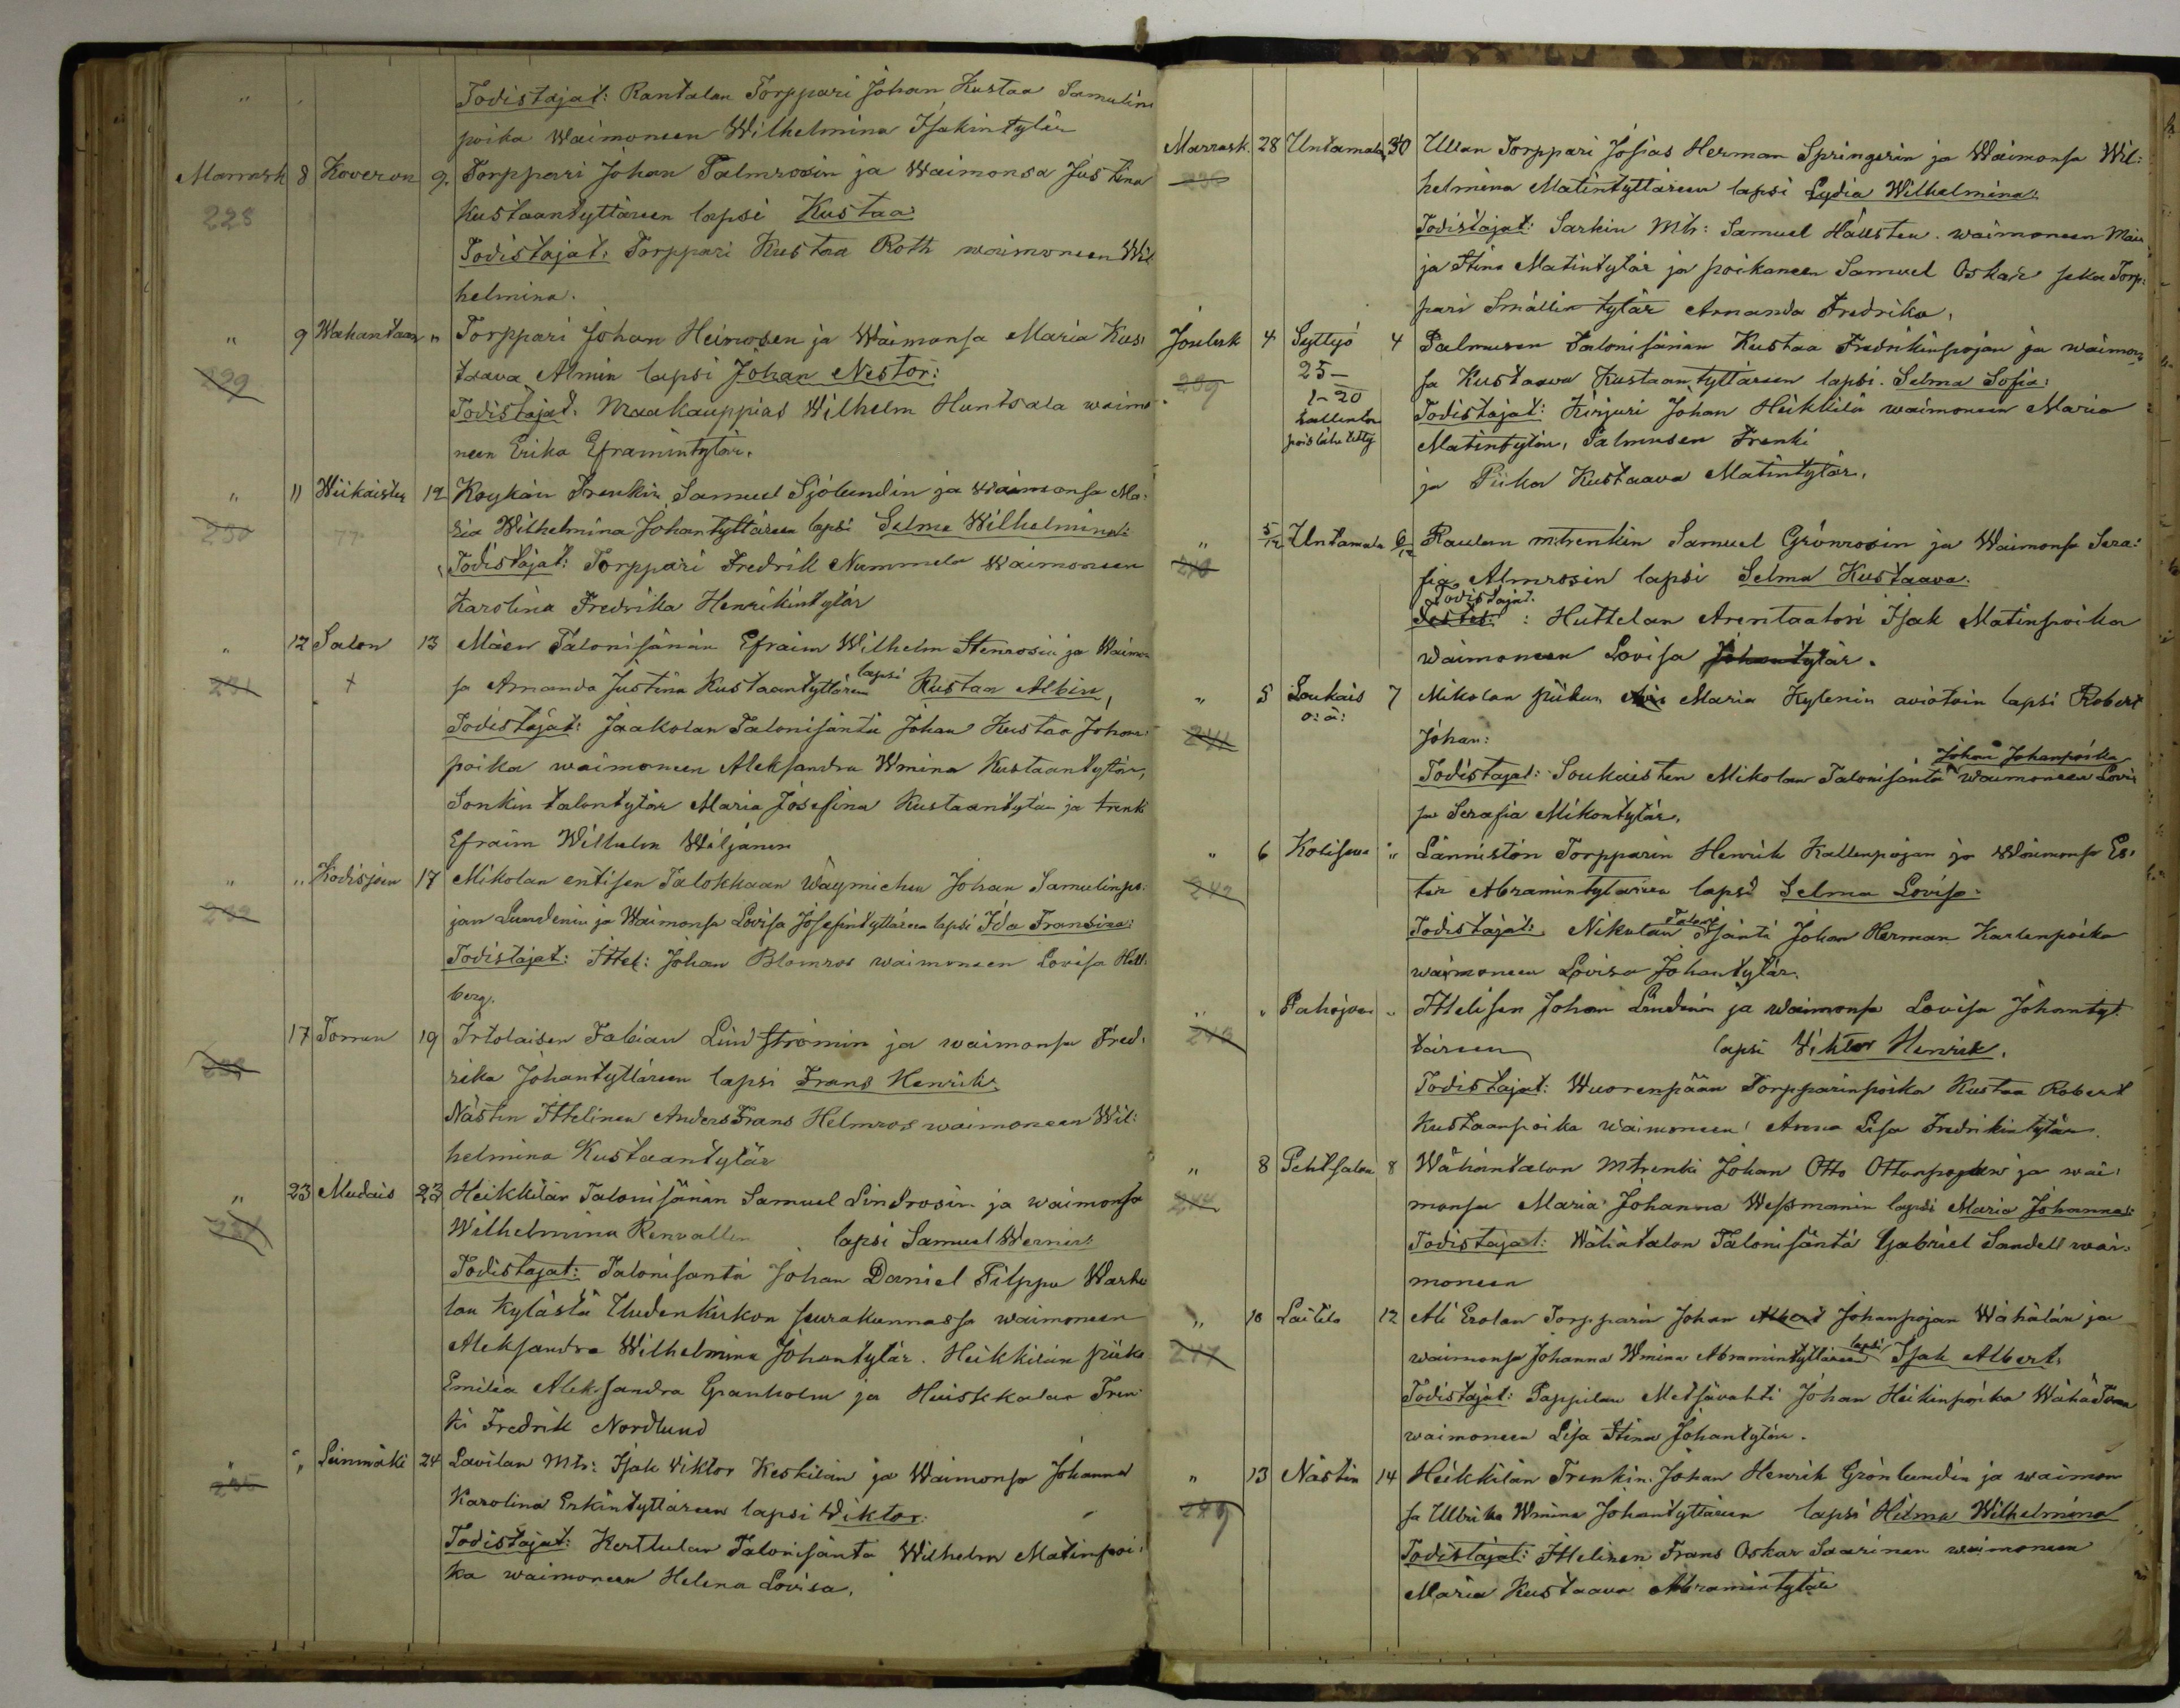 " Todistajat: Rantalan Torppari Johan Kustaa Samulin
poika Waimoneen Wilhelmina Isakintytär
Marrask 8 Koveron 9. Torppari Johan Palmrosin ja Waimonsa Justina
228 Kustaantyttären lapsi Kustaa
Todistajat: Torppari Kustaa Roth waimoneen Wil
helmina.
" 9 Wahantaan " Torppari Johan Heinosen ja Waimonsa Maria Kus:
229 taava Almin lapsi Johan Nestor:
Todistajat: Maakauppias Wilhelm Huntsala waimo
neen Erika Eframintytär.
" 11 Wiikaisten 12 Koykän Trenkin Samuel Sjölundin ja Waimonsa Ma:
230 77. ria Wilhelmina Johantyttären lapsi Selma Wilhelmina:
Todistajat: Torppari Fredrik Nummela Waimoneen
Karolina Fredrika Henrikintytär
" 12 Salon 13 Mäen Talonisänän Efraim Wilhelm Stenrosin ja Waimon
231 + sa Amanda Justina Kustaantyttären lapsi Kustaa Albin,
Todistajat: Jaakolan Talonisäntä Johan Kustaa Johan:
poika waimoneen Aleksandra Wmina Kustaantytär,
Sonkin talontytär Maria Josefina Kustaantytär ja trenki
Efraim Wilhelm Wiljanen
" " Kodisjoen 17 Mikolan entisen Talokkaan Wäymiehen Johan Samulinpo:
232 jan Lundenin ja Waimonsa Lovisa Josefintyttären lapsi Ida Fransina:
Todistajat: Ittel: Johan Blomros waimoneen Lovisa Hell
berg.
17 Torran 19 Irtolaisen Fabian Lindströmin ja waimonsa Fred:
233 rika Johantyttären lapsi Frans Henrik:
Nästin Ittelinen Anders Frans Helmros waimoneen Wil:
helmina Kustaantytär
" 23 Mudais 23 Heikkilän Talonisänän Samuel Lindrosin ja waimonsa
234 Wilhelmina Renvallin lapsi Samuel Werner:
Todistajat: Talonisäntä Johan Daniel Filppu Warhe
lan Kylästä Uudenkirkon seurakunnassa waimoneen
Aleksandra Wilhelmina Johantytär. Heikkilän piika
Emilia Aleksandra Granholm ja Huiskkalan Tren
ki Fredrik Nordlund
" " Leinmäki 24 Lavilan Mtr: Isak Viktor Keskilän ja Waimonsa Johanna
235 Karolina Erkintyttären lapsi Wiktor:
Todistajat: Kerttulan Talonisäntä Wilhelm Matinpoi:
ka waimoneen Helena Lovisa.
Marrask. 28 Untamala 30 Ullan Torppari Josias Herman Springerin ja Waimonsa Wil:
236 helmina Matintyttären lapsi Lydia Wilhelmina:
Todistajat: Sarkin Mtr: Samuel Hällsten waimoneen Mau
ja Stina Matintytär ja poikaneen Samuel Oskar seka Torp:
pari Smallin tytär Amanda Fredrika.
Joulusk 4 Syttyö 4 Palmusen Talonisänän Kustaa Fredrikinpojan ja waimon
239 25— sa Kustaava Kustaantyttären lapsi. Selma Sofia:
1-20 Todistajat: Kinjuri Johan Heikkilä waimoneen Maria
Matintytär, Palmusen Trenki
poislähetetty ja Piika Kustaava Matintytär.
" 5/12 Untamala 6/12 Raulan mtrenkin Samuel Grönrosin ja Waimonsa Sera:
240 fia Almrosin lapsi Selma Kustaava:
Todistajat.
: Huttelan Arentaatori Isak Matinpoika
waimoneen Lovisa Johantytär.
" 5 Soukais 7 Mikolan piikan Maria Hylenin aviotoin lapsi Robert
241 o: ä: Johan:
Todistajat: Soukaisten Mikolan Talonisäntä Johan Johanpoika waimoneen Lovi
sa Serafia Mikontytär.
" 6 Kolisewa " Länniston Torpparin Henrik Kallenpojan ja Waimonsa Es:
242 ter Abramintyttären lapsi Selma Lovisa:
Todistajat: Nikulan Talonisänti Johan Herman Karlenpoika
waimoneen Lovisa Johantytär.
" " Pahojoen " Ittelisen Johan Lindenin ja waimonsa Lovisa Johantyt
243 täreen lapsi Viktor Henrik.
Todistajat: Wuorenpään Torpparinpoika Kustaa Robert
Kustaanpoika waimoneen Anna Lisa Fredrikintytär.
" 8 Pehtsalon 8 Wähäntalon Mtrenki Johan Otto Ottonpojan ja wai:
244 monsa Maria Johanna Wessmanin lapsi Maria Johanna:
Todistajat: Wähätalon Talonisäntä Gabriel Sandell wai:
moneen
" 10 Laitila 12 Ali Erolan Torpparin Johan Albert Johanpojan Wähälän ja
247 waimonsa Johanna Wmina Abramintyttären lapsi Isak Albert:
Todistajat: Pappilan Metsävahti Johan Heikinpoika Wähä Torra
waimoneen Lisa Stina Johantytär.
" 13 Nästin 14 Heikkilän Trenkin Johan Henrik Grönlundin ja waimon
249 sa Ulrika Wmina Johantyttären lapsi Hilma Wilhelmina
Todistajat: Ittelinen Frans Oskar Saarinen waimoneen
Maria Kustaava Abramintytär